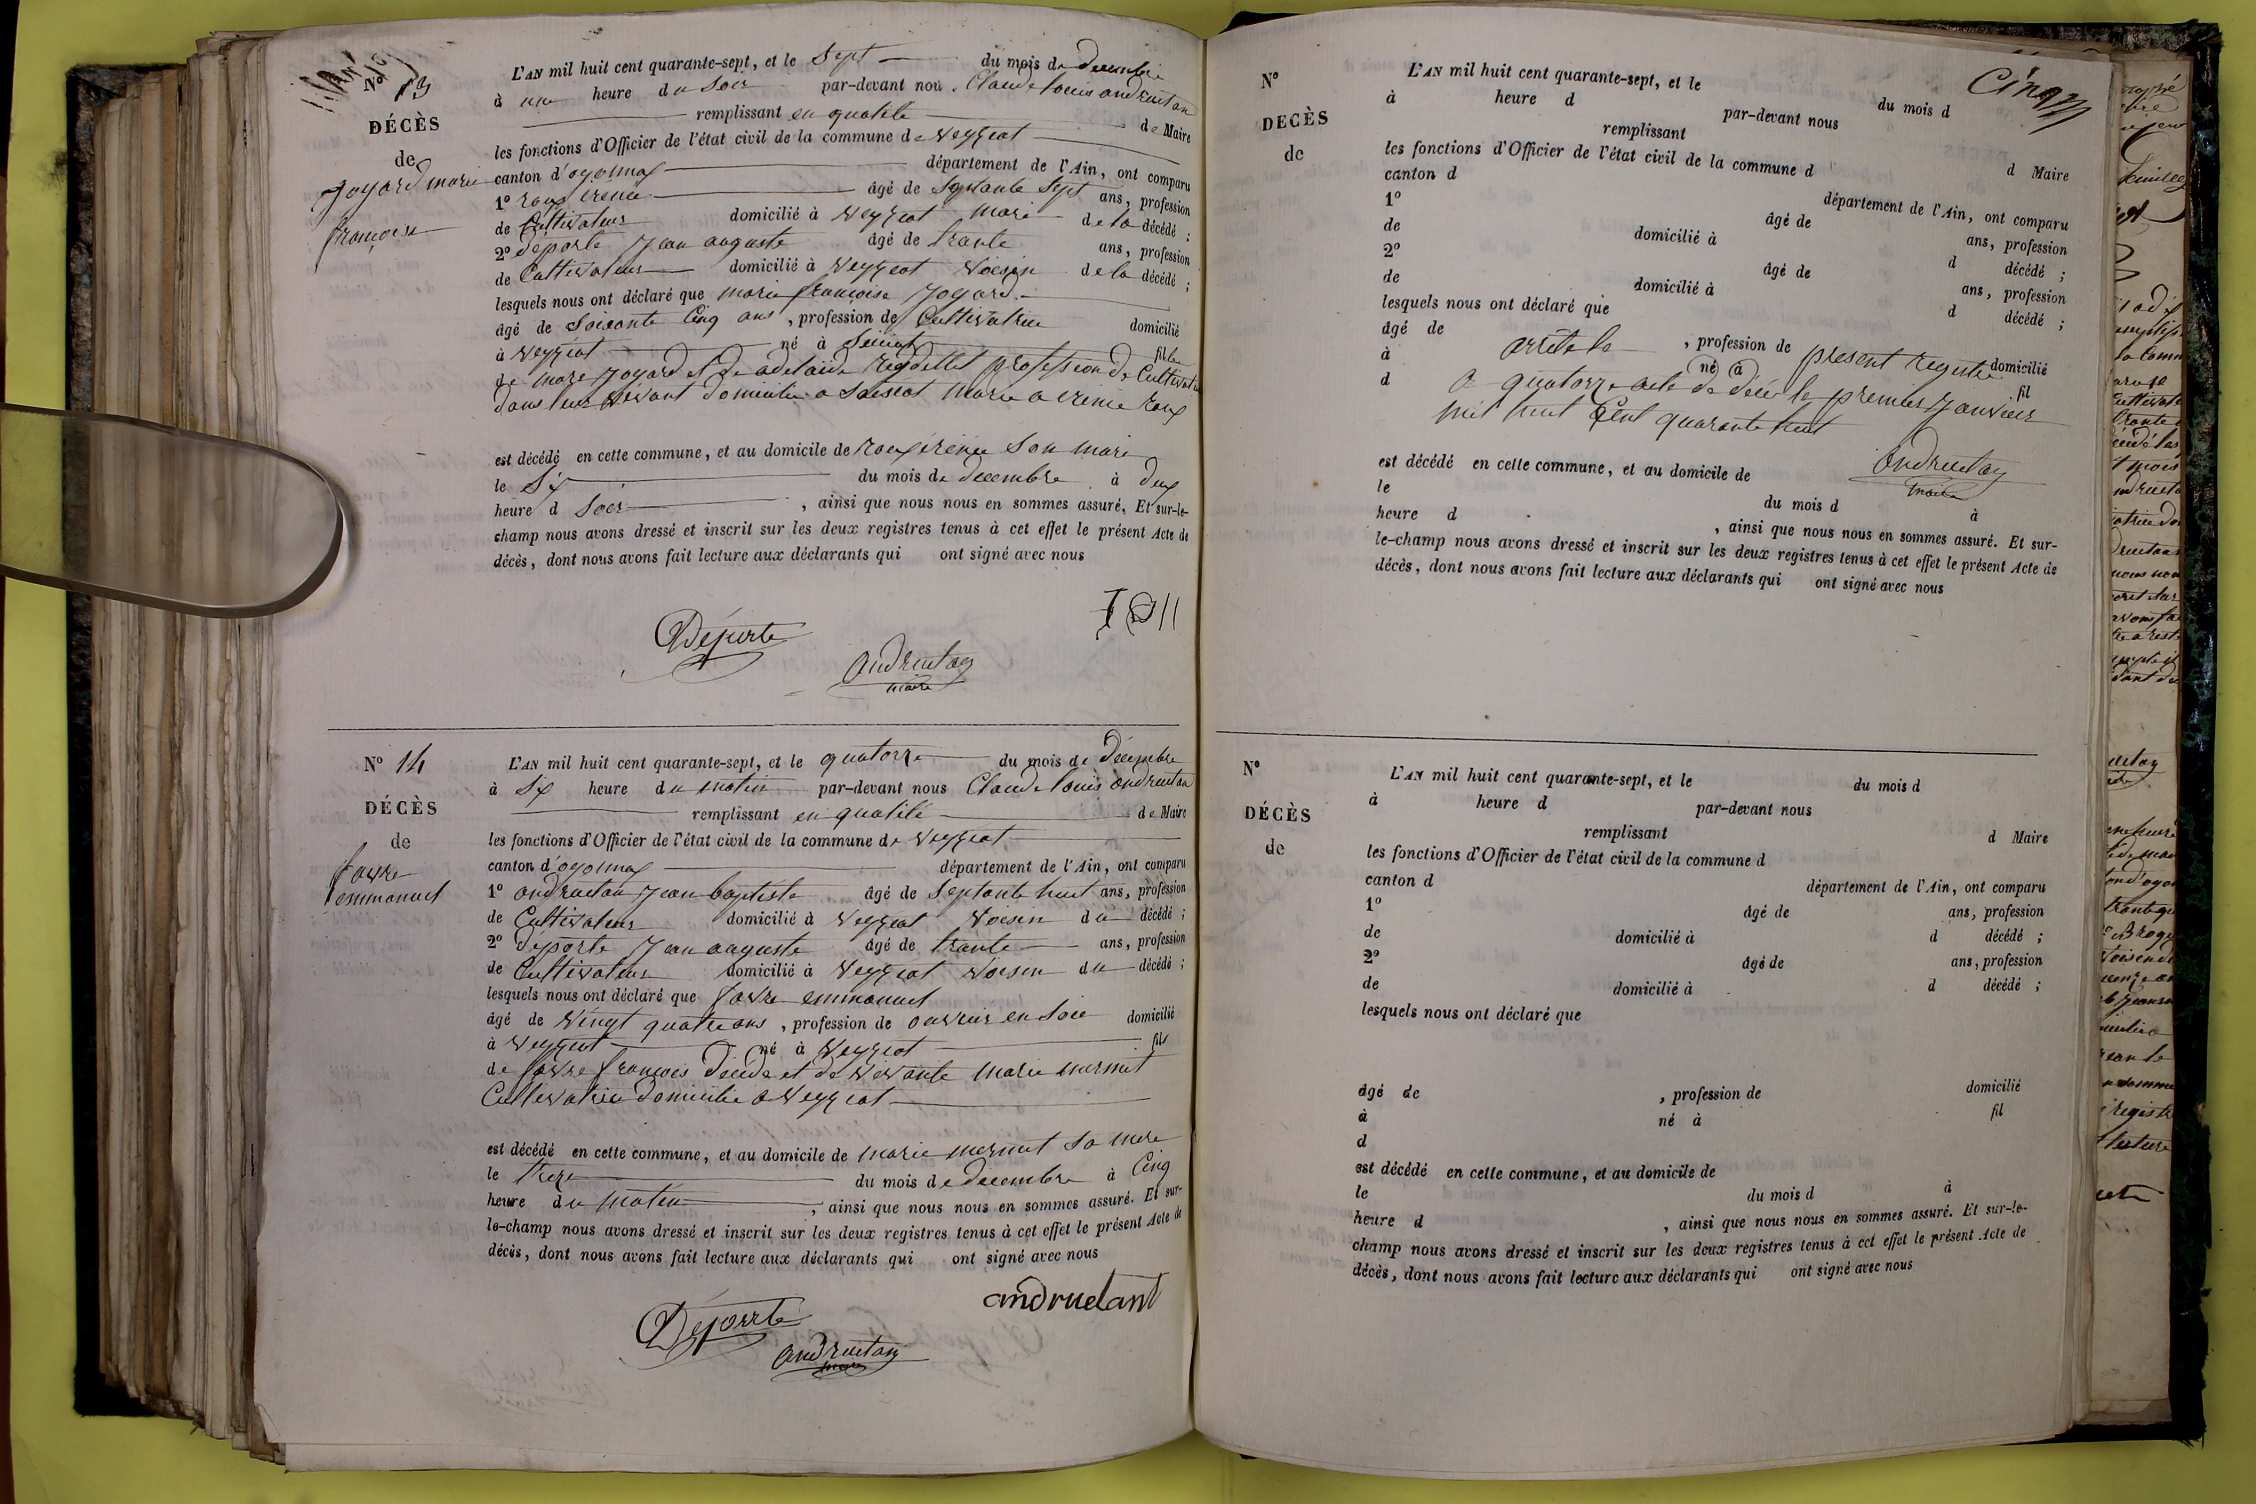 Nº 13
DÉCÈS
de
Joyard marie
françoise
L'AN mil huit cent quarante-sept, et le Sept du mois de decembre
à une heure du Soir par-devant nous Claude louis andruetan
remplissant en qualité de Maire
les fonctions d'Officier de l'état civil de la commune de Veyziat
canton d'oyonnax département de l'Ain, ont comparu
1º roux irenée âgé de Soptante Sept ans, profession
de Cultivateur domicilié à Veyziat mari de la décédé ;
2º déporte Jean auguste âgé de trante ans, profession
de Cultivateur domicilié à Veyziat Voisin de la décédé ;
lesquels nous ont déclaré que marie françoise Joyard
âgé de Soixante Cinq ans, profession de Cultivatrice domicilié
à Veyziat né à fille
de marc Joyard et de adelaide profession de Cultivateur
dans leur vivant domicilie a marie a irenie roux
est décédé en cette commune, et au domicile de roux irénée Son mari
le Six du mois de decembre à deux
heure d Soir, ainsi que nous nous en sommes assuré. Et sur-le-
champ nous avons dressé et inscrit sur les deux registres tenus à cet effet le présent Acte de
décès, dont nous avons fait lecture aux déclarants qui ont signé avec nous
Déporte
andruetan
maire
Nº 14
DÉCÈS
de
favre
emmanuel
L'AN mil huit cent quarante-sept, et le quatorze du mois de décembre
à Six heure du matin par-devant nous Claude louis andruetan
remplissant en qualité de Maire
les fonctions d'Officier de l'état civil de la commune de Veyziat
canton d'oyonnax département de l'Ain, ont comparu
1º andruetan Jean baptiste âgé de Septante huit ans, profession
de Cultivateur domicilié à Veyziat Voisin du décédé ;
2º déporte Jean auguste âgé de trante ans, profession
de Cultivateur domicilié à Veyziat Voisin du décédé ;
lesquels nous ont déclaré que favre emmanuel
âgé de Vingt quatre ans, profession de ouvrier en Soie domicilié
à Veyziat né à Veyziat fils
de favre françois décédé et de vivante marie mermet
Cultivatrice domicilie a Veyziat
est décédé en cette commune, et au domicile de marie mermet Sa mere
le treze du mois de decembre à Cinq
heure du matin, ainsi que nous nous en sommes assuré. Et sur-
le-champ nous avons dressé et inscrit sur les deux registres tenus à cet effet le présent Acte de
décès, dont nous avons fait lecture aux déclarants qui ont signé avec nous
andruetant
Déporte
andruetan
maire
Nº
DÉCÈS
de
L'AN mil huit cent quarante-sept, et le du mois d
à heure d par-devant nous
remplissant d Maire
les fonctions d'Officier de l'état civil de la commune d
canton d département de l'Ain, ont comparu
1º âgé de ans, profession
de domicilié à d décédé ;
2º âgé de ans, profession
de domicilié à d décédé ;
lesquels nous ont déclaré que
âgé de , profession de domicilié
à né à fil
d
arrêté le present registre
a quatorze acte de décès le premier Janvier
mil huit Cent quarante huit
andruetan
maire
est décédé en cette commune, et au domicile de
le du mois d à
heure d , ainsi que nous nous en sommes assuré. Et sur-
le-champ nous avons dressé et inscrit sur les deux registres tenus à cet effet le présent Acte de
décès, dont nous avons fait lecture aux déclarants qui ont signé avec nous
Nº
DÉCÈS
de
L'AN mil huit cent quarante-sept, et le du mois d
à heure d par-devant nous
remplissant d Maire
les fonctions d'Officier de l'état civil de la commune d
canton d département de l'Ain, ont comparu
1º âgé de ans, profession
de domicilié à d décédé ;
2º âgé de ans, profession
de domicilié à d décédé ;
lesquels nous ont déclaré que
âgé de , profession de domicilié
à né à fil
d
est décédé en cette commune, et au domicile de
le du mois d à
heure d , ainsi que nous nous en sommes assuré. Et sur-le-
champ nous avons dressé et inscrit sur les deux registres tenus à cet effet le présent Acte de
décès, dont nous avons fait lecture aux déclarants qui ont signé avec nous